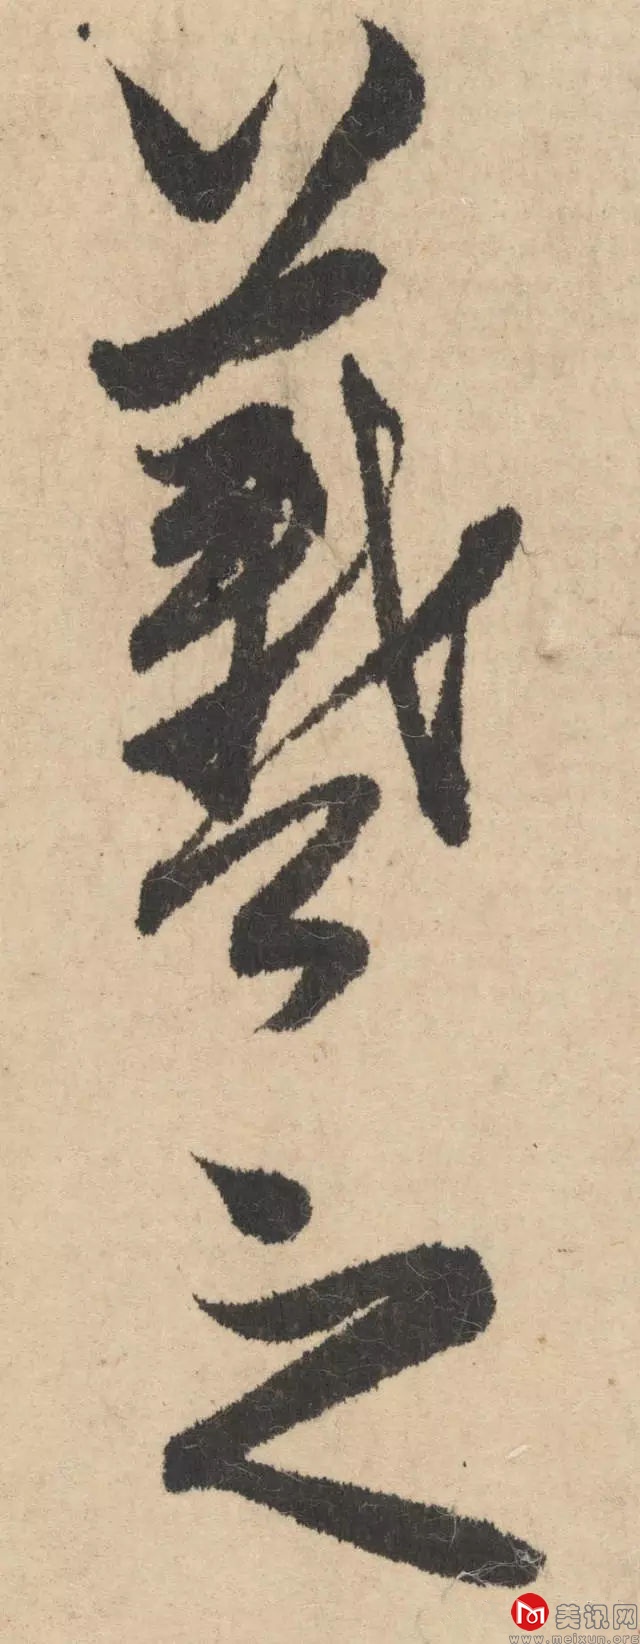 羲
之
美讯网
www.meixun.org